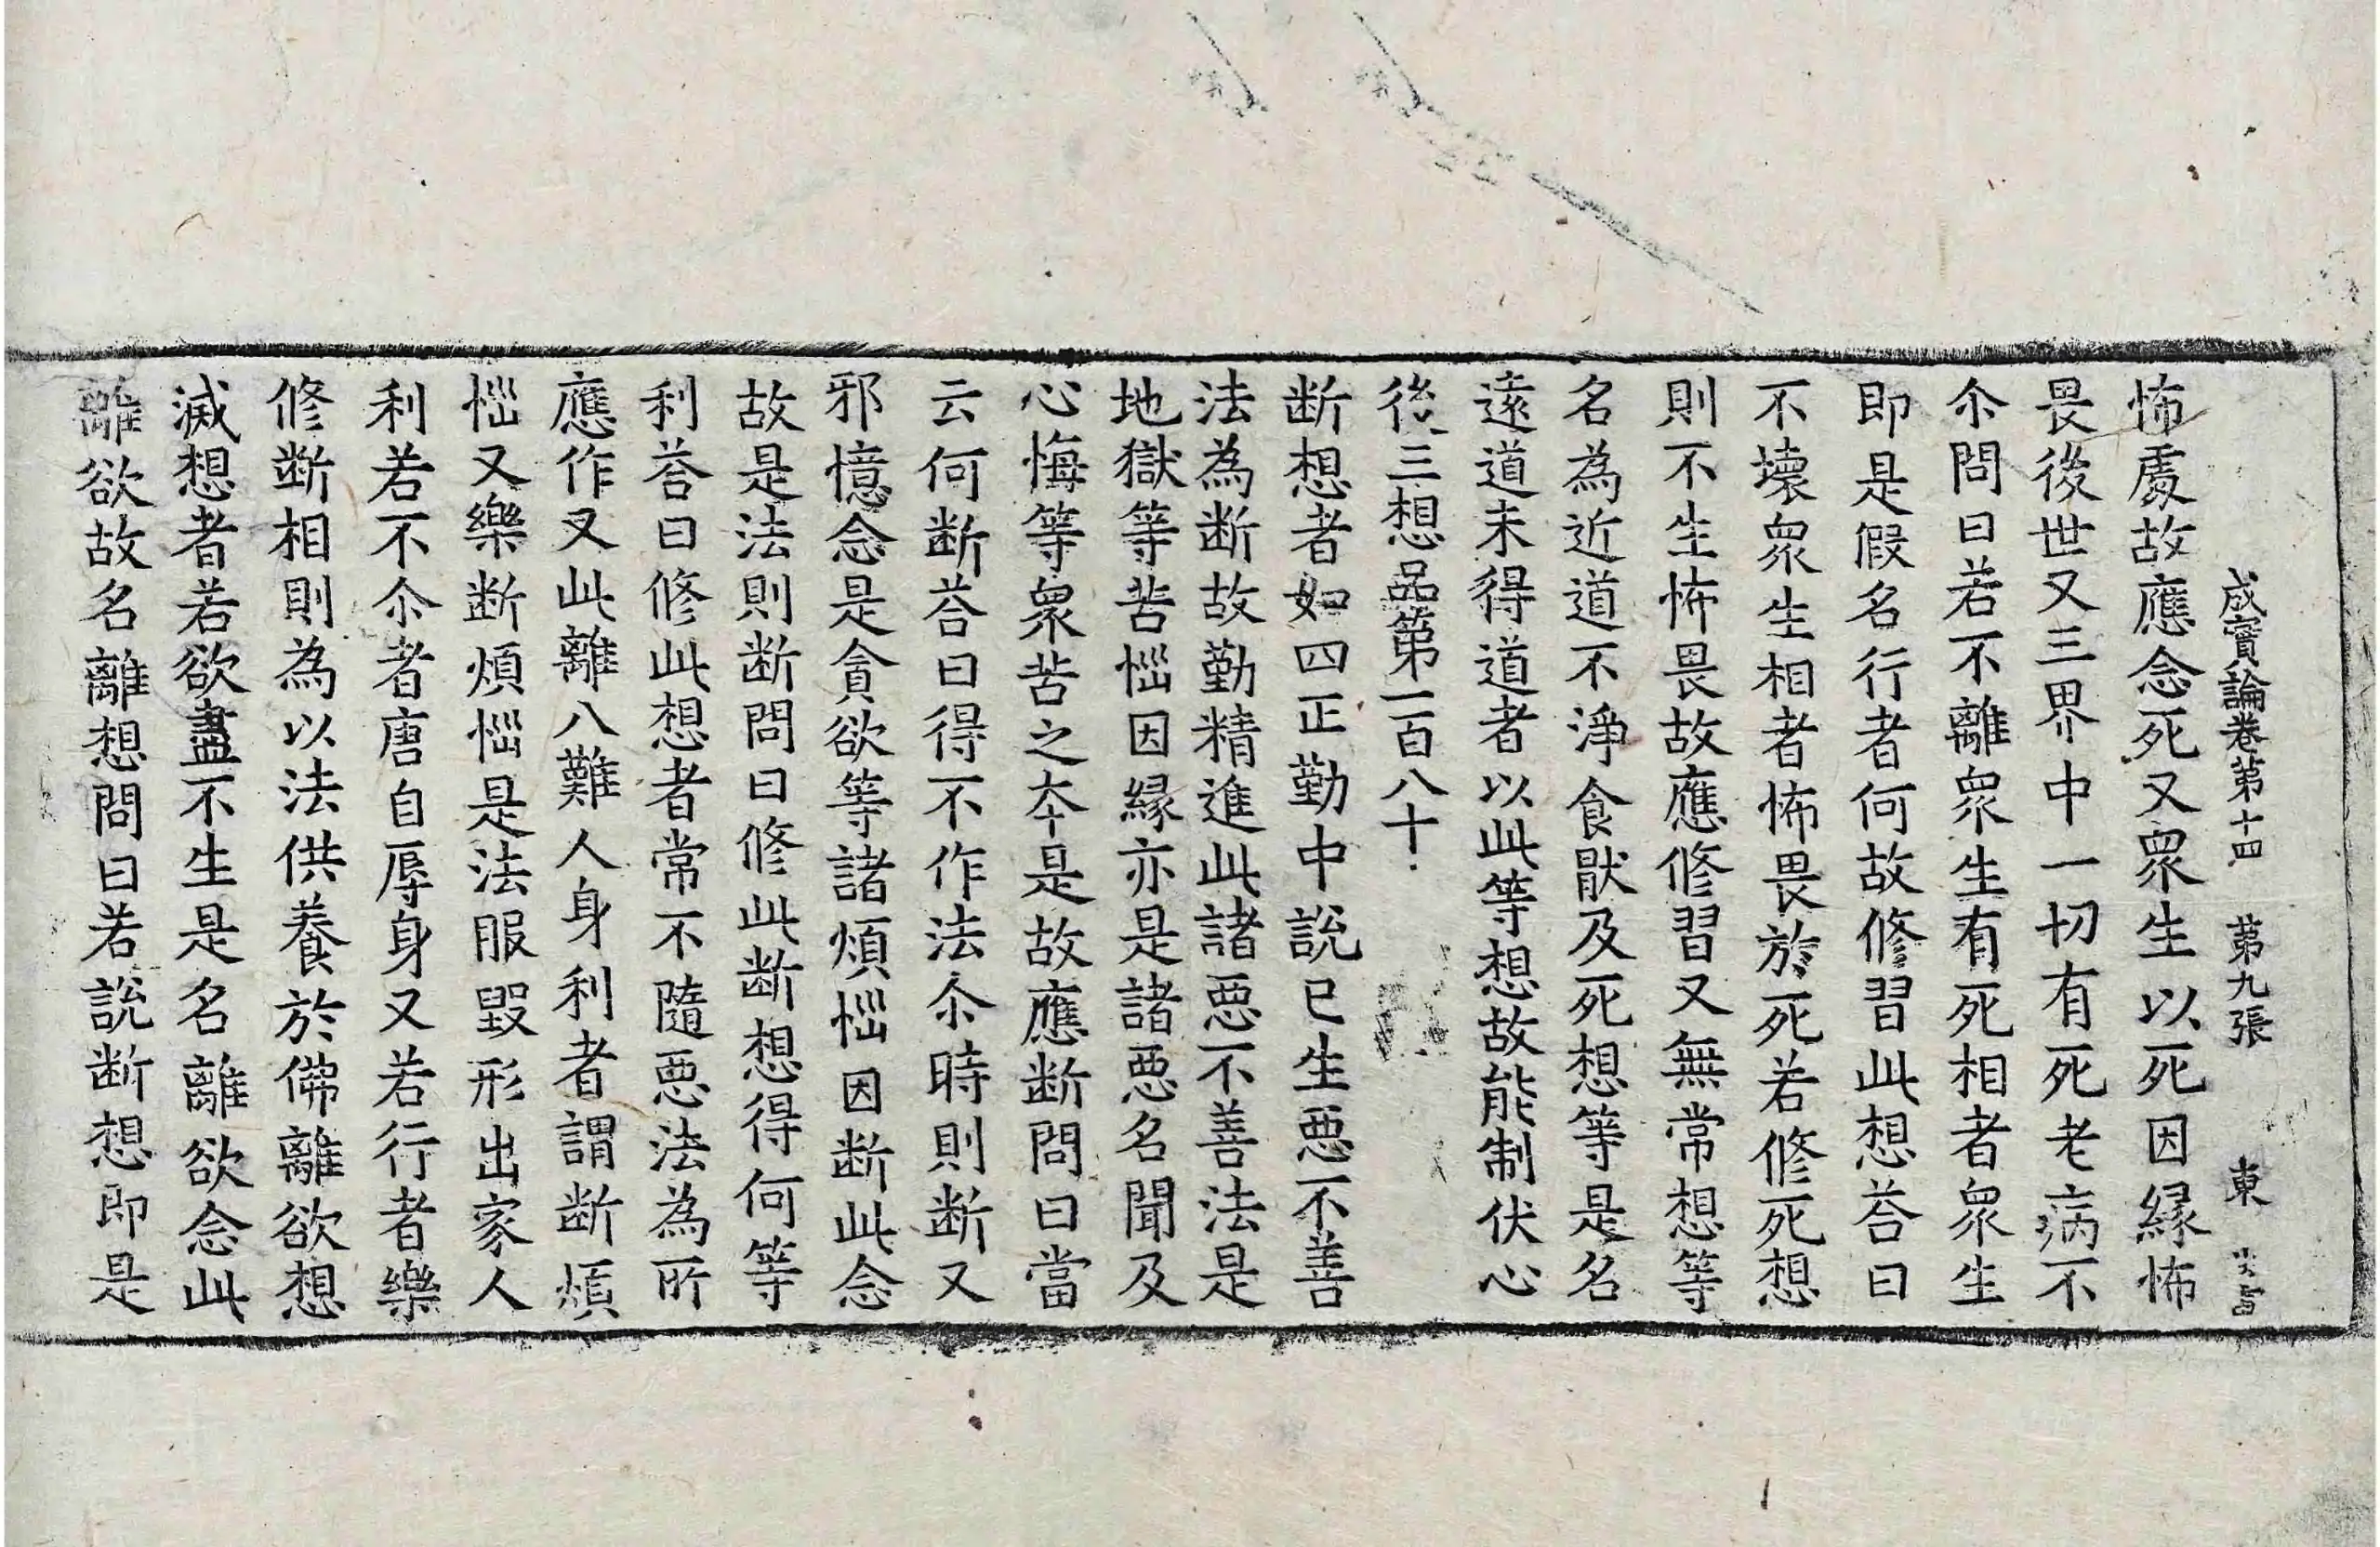 成實論卷第十四 第九張 東
怖處故應念死又衆生以死因縁怖
畏後世又三界中一切有死老病不
尒問曰若不離衆生有死相者衆生
即是假名行者何故修習此想荅曰
不壞衆生相者怖畏於死若修死想
則不生怖畏故應修習又無常想等
名為近道不淨食猒及死想等是名
遠道未得道者以此等想故能制伏心
後三想品第一百八十
断想者如四正勤中說已生惡不善
法為断故勤精進此諸惡不善法是
地獄等苦惱因縁亦是諸惡名聞及
心悔等衆苦之夲是故應断問曰當
云何断荅曰得不作法尒時則断又
邪憶念是貪欲等諸煩惱因断此念
故是法則断問曰修此断想得何等
利荅曰修此想者常不隨惡法為所
應作又此離八難人身利者謂断煩
惱又樂断煩惱是法服毀形出家人
利若不尒者唐自辱身又若行者樂
修断相則為以法供養於佛離欲想
滅想者若欲盡不生是名離欲念此
離欲故名離想問曰若說断想即是